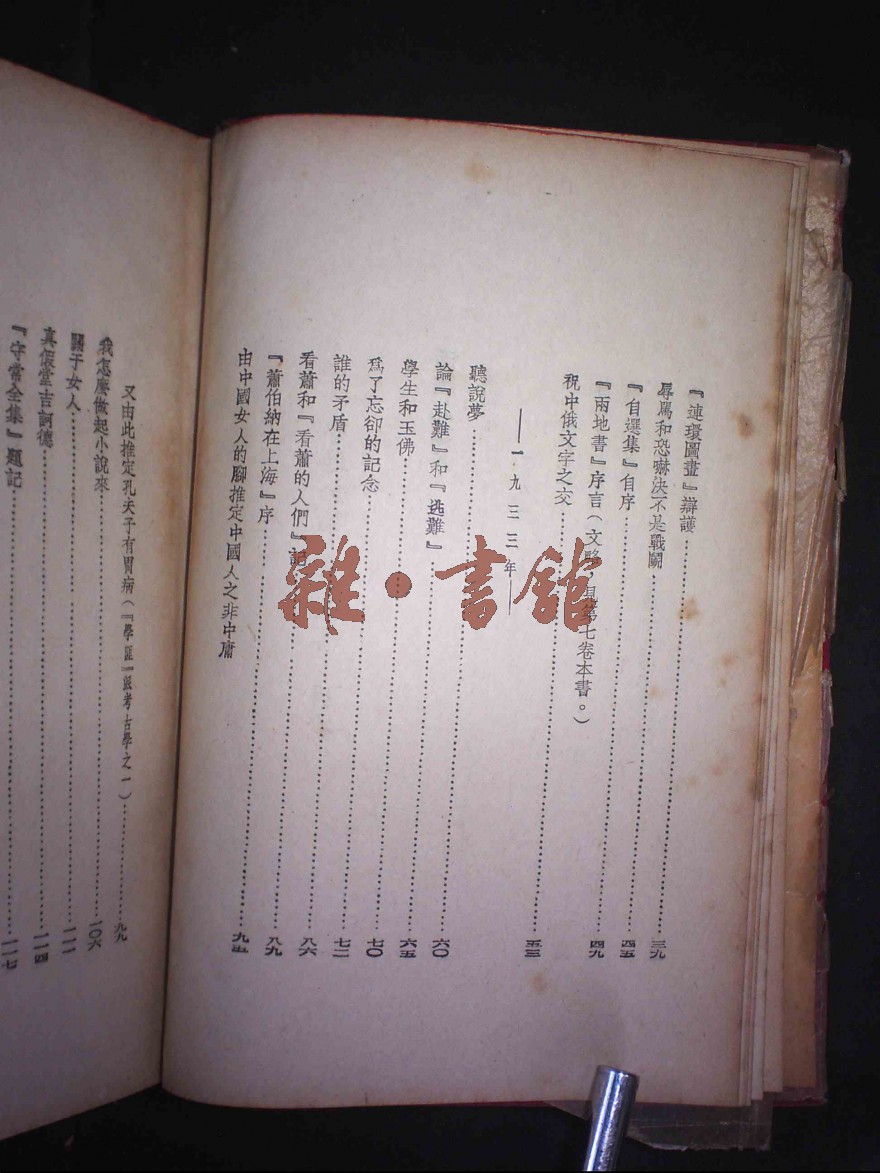 『連環圖畫』辯護……三九
辱罵和恐嚇決不是戰鬭……四五
『自選集』自序……四九
『兩地書』序言（文略，見第七卷本書。）
祝中俄文字之交……五三
——一九三三年——
聽說夢……六〇
論『赴難』和『逃難』……六五
學生和玉佛……七〇
爲了忘卻的記念……七二
誰的矛盾……八六
看蕭和『看蕭的人們』記……八九
『蕭伯納在上海』序……九五
由中國女人的腳推定中國人之非中庸
又由此推定孔夫子有胃病（『學匪』派考古學之一）……九九
我怎麼做起小說來……一〇六
關于女人……一一一
真假堂吉訶德……一一四
『守常全集』題記……一一七
雜·書館